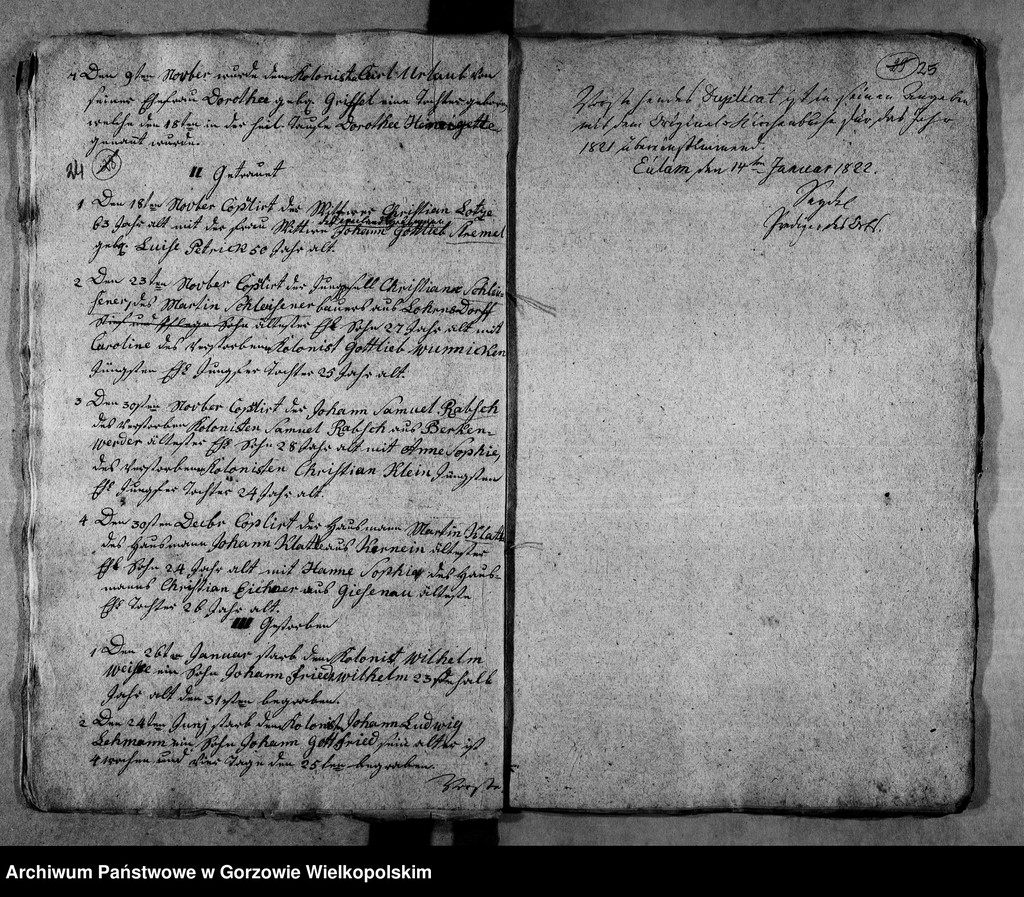 4 Den 9ten Novber wurde dem Kolonist Carl Urlaub von
seiner Ehefrau Dorothee gebg. Grissel eine Tochter geboren,
welche den 18ten in der heil. Taufe Dorothee
genant wurde.
24
II Getrauet
1 Den 18ten Novber Coplirt der Wittwer Christian Lotze
63 Jahr alt mit der Frau Wittwe Johann Gottlieb Kremel
gebg. Luise Petrick 50 Jahr alt.
2 Den 23ten Novber Coplirt der Junggesell Christian Schlei-
sener, des Martin Schleisener bauers aus
Sohn ältester Ehl Sohn 27 Jahr alt mit
Caroline des verstorbenen Kolonist Gottlieb Wunnicken
Jüngsten Ehl Jungfer Tochter 25 Jahr alt.
3 Den 30sten Novber Coplirt der Johann Samuel Rabsch
des verstorben Kolonisten Samuel Rabsch aus Berken-
werder ältester Ehl Sohn 28 Jahr alt mit Anne Sophie,
des verstorbenen Kolonisten Christian Klein Jüngsten
Ehl Jungfer Tochter 24 Jahr alt.
4 Den 30sten Decbr Coplirt der Hausmann Martin Klatt
des Hausmann Johann Klatt aus Kernein ältester
Ehl Sohn 24 Jahr alt mit Hanne Sophie des Haus-
manns Christian Eichner aus Giesenau älteste
Ehl Tochter 26 Jahr alt.
III Gestorben
1 Den 26ten Januar starb dem Kolonist Wilhelm
Weiske ein Sohn Johann Fried Wilhelm 23 halb
Jahr alt den 31sten begraben.
2 Den 24ten Junj starb dem Kolonist Johann Ludwig
Lehmann ein Sohn Johann Gottfried sein alter ist
4 wochen und vier Tage den 25ten begraben.
Vorste
25
Vorstehendes Duplicat ist in seinen Angaben
mit dem Original-Kirchenbuche für das Jahr
1821 übereinstimmend.
Eulam den 14ten Januar 1822.
Prediger des Orts.
Archiwum Państwowe w Gorzowie Wielkopolskim